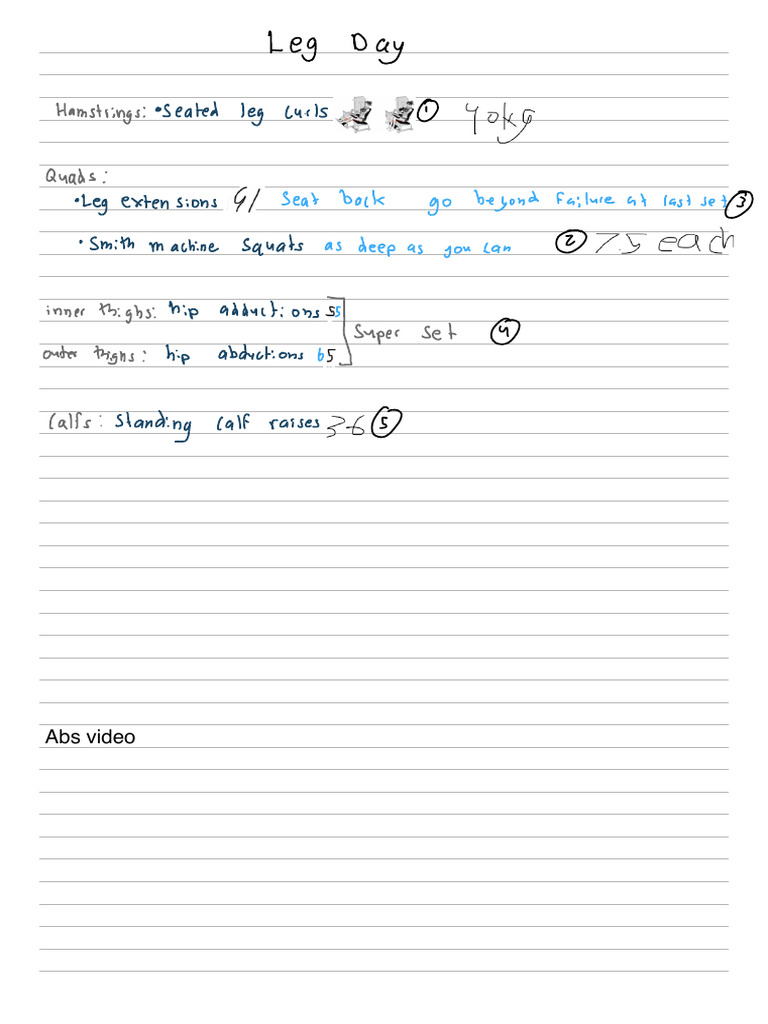 Leg Day
Hamstrings: •Seated leg curls ① 40kg
Quads:
•Leg extensions 91 Seat back go beyond failure at last set ③
•Smith machine Squats as deep as you can ② 7.5 each
inner thighs: hip adductions 55
Super set ④
outer thighs: hip abductions 65
Calfs: Standing calf raises 36 ⑤
Abs video